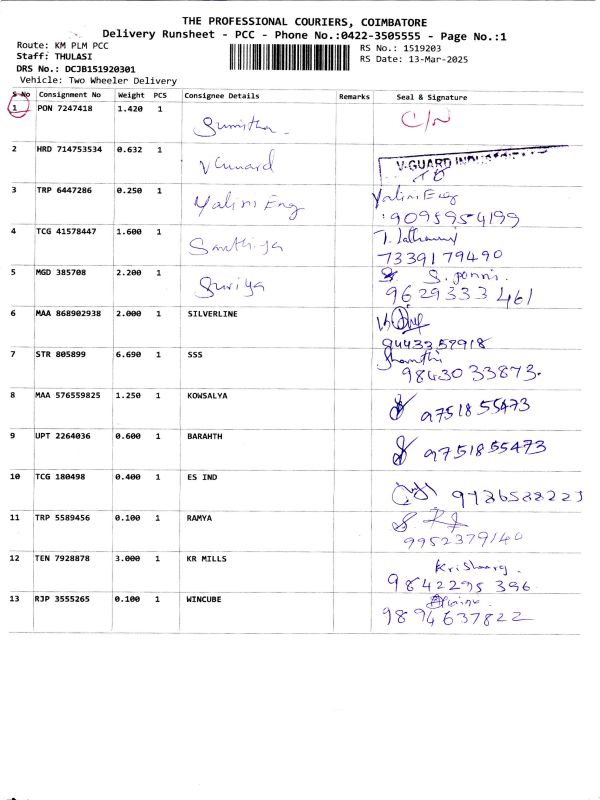 THE PROFESSIONAL COURIERS, COIMBATORE
Delivery Runsheet - PCC - Phone No.:0422-3505555 - Page No.:1
Route: KM PLM PCC
Staff: THULASI
DRS No.: DCJB151920301
Vehicle: Two Wheeler Delivery
RS No.: 1519203
RS Date: 13-Mar-2025
S No Consignment No Weight PCS Consignee Details Remarks Seal & Signature
1 PON 7247418 1.420 1 Sumitha C/N
2 HRD 714753534 0.632 1 V Guuard V-GUARD
3 TRP 6447286 0.250 1 Yalini Eng Yalini Eng
9095954199
4 TCG 41578447 1.600 1 Santhiya
7339179490
5 MGD 385708 2.200 1 Suriya S. ponni.
9629333461
6 MAA 868902938 2.000 1 SILVERLINE
9443352918
7 STR 805899 6.690 1 SSS Shanthi
9843033873.
8 MAA 576559825 1.250 1 KOWSALYA 9751855473
9 UPT 2264036 0.600 1 BARAHTH 9751855473
10 TCG 180498 0.400 1 ES IND
11 TRP 5589456 0.100 1 RAMYA
9952379140
12 TEN 7928878 3.000 1 KR MILLS
9842295 396
13 RJP 3555265 0.100 1 WINCUBE
9894637822